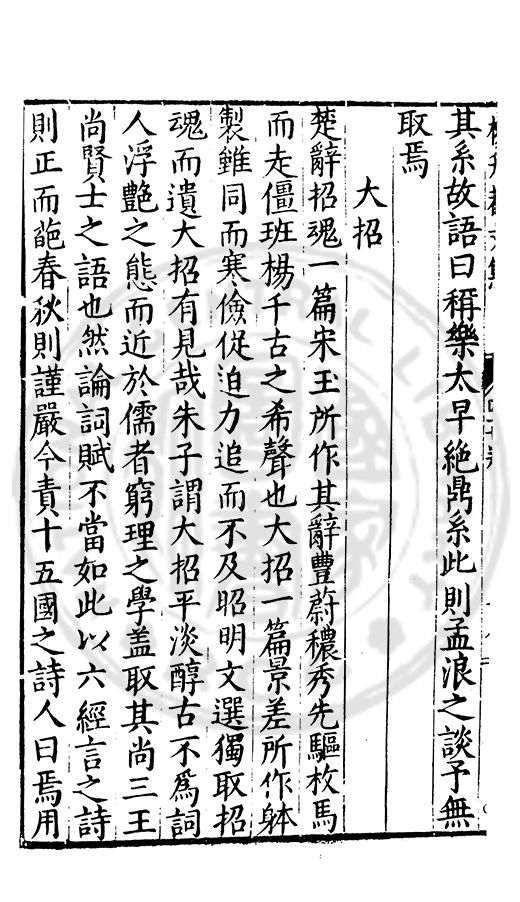 其系故語曰稱樂太早絶鼎系此則孟浪之談予無
取焉
大招
楚辭招魂一篇宋玉所作其辭豐蔚穠秀先驅枚馬
而走僵班楊千古之希聲也大招一篇景差所作躰
製雖同而寒儉促迫力追而不及昭明文選獨取招
魂而遺大招有見哉朱子謂大招平淡醇古不爲詞
人浮艷之態而近於儒者窮理之學盖取其尚三王
尚賢士之語也然論詞賦不當如此以六經言之詩
則正而葩春秋則謹嚴今責十五國之詩人曰焉用